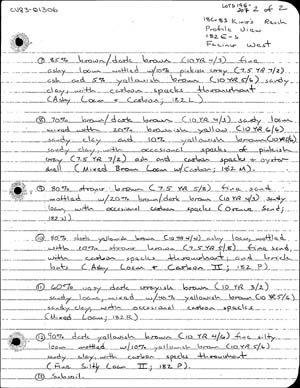 CV83-01306
2 of 2
186-83 King's Reach
Profile View
182 E-S
Facing West
⑦ 85% brown/dark brown (10 YR 4/3) fine
ashy loam mottled w/10% pinkish gray (7.5 YR 7/2)
ash and 5% yellowish brown (10 YR 5/6) sandy
clay, with carbon specks throughout
(Ashy Loam + Carbon; 182 L)
⑧ 70% brown/dark brown (10 YR 4/3) sandy loam
mixed with 20% brownish yellow (10 YR 6/6)
sandy clay and 10% yellowish brown
sandy clay, with occasional specks of pinkish
gray (7.5 YR 7/2) ash and carbon specks + oyster
shell (Mixed Brown Loam w/Carbon; 182 M)
⑨ 80% strong brown (7.5 YR 5/8) fine sand
mottled w/20% brown/dark brown (10 YR 4/3) sandy
loam, with occasional carbon specks (Orange Sand;
182 N)
⑩ 90% dark yellowish brown (10 YR 4/4) ashy loam, mottled
with 10% strong brown (7.5 YR 5/8) fine sand,
with carbon specks throughout, and brick
bats (Ashy Loam + Carbon II; 182 P).
⑪ 60% very dark grayish brown (10 YR 3/2)
sandy loam, mixed w/40% yellowish brown (10 YR 5/6)
sandy clay, with occasional carbon
specks
(Mixed Loam; 182 R)
⑫ 90% dark yellowish brown (10 YR 4/6) fine silty
loam mottled w/10% yellowish brown (10 YR 5/6)
sandy clay, with carbon specks throughout
(Fine Silty Loam II; 182 S).
⑬ Subsoil